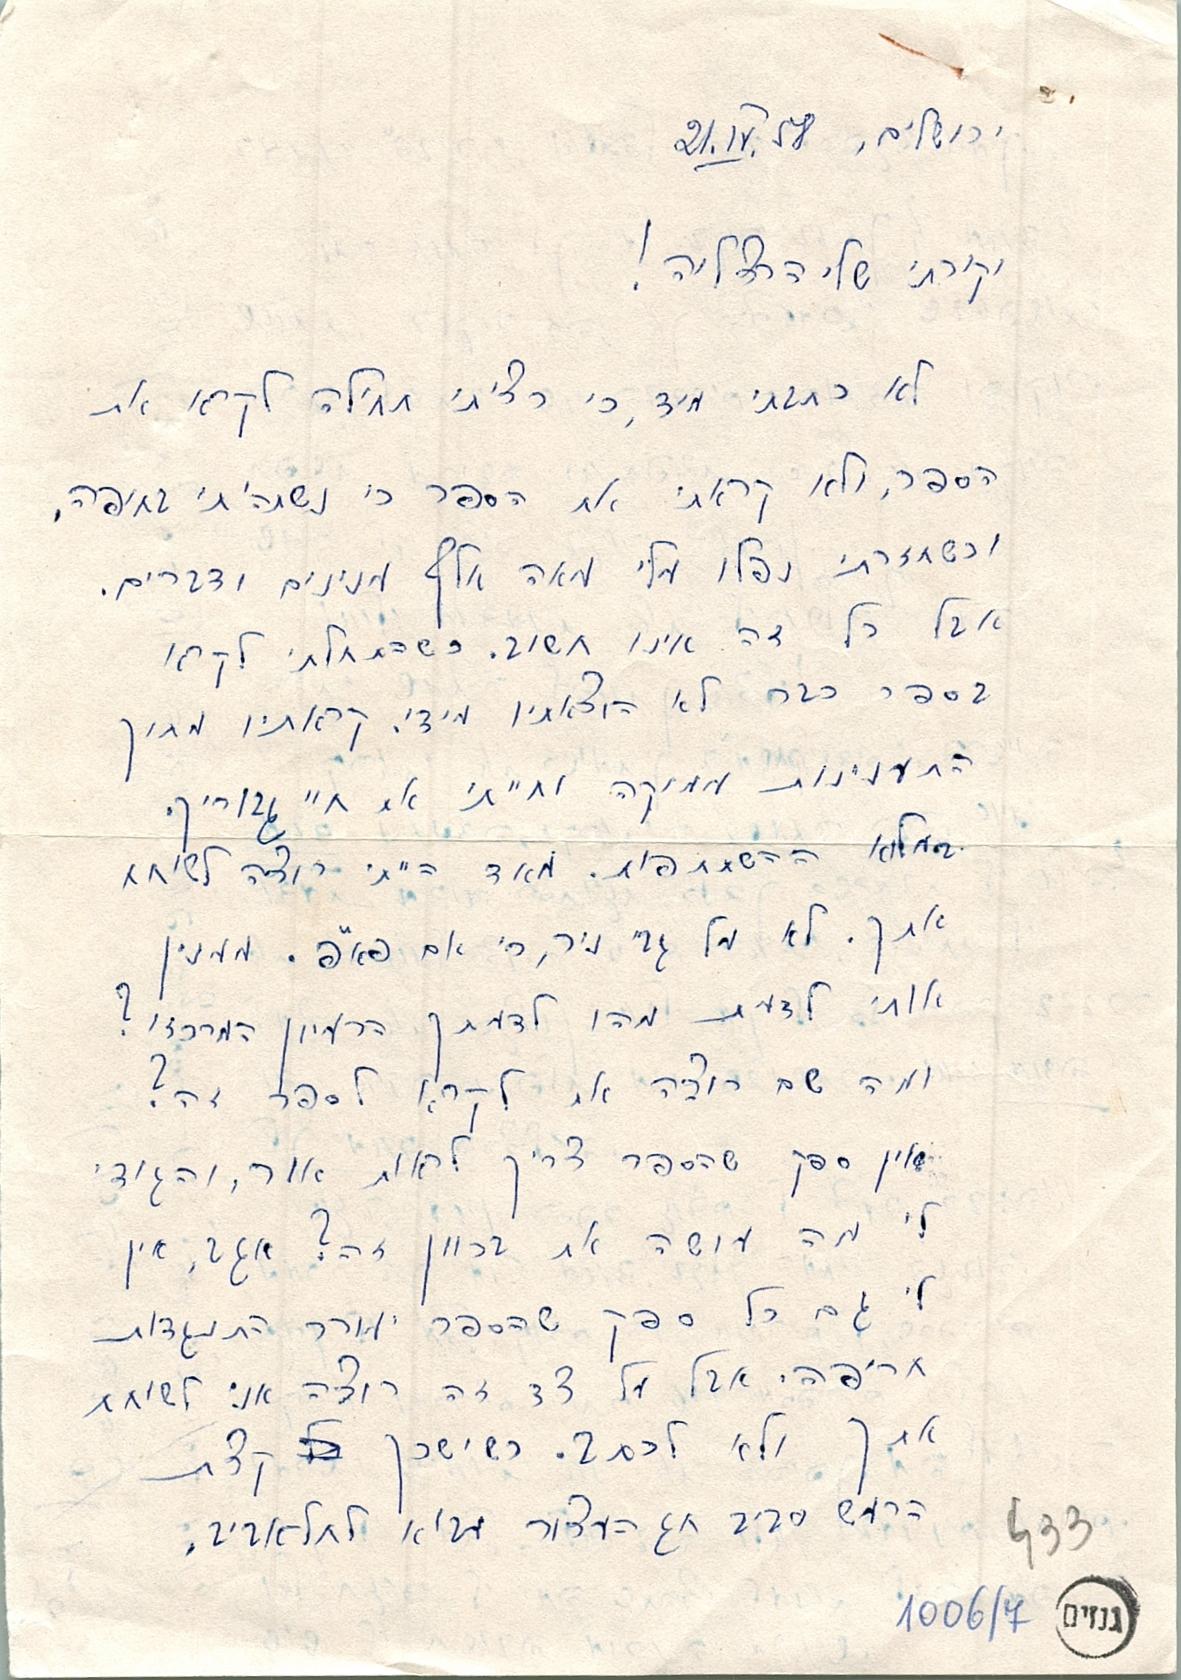 ירושלים, 21.IV.58
יקירתי שלי הרצליה!
לא כתבתי מיד, כי רציתי תחילה לקרא את
הספר, ולא קראתי את הספר כי נשתהיתי בחיפה,
וכשחזרתי נפלו עלי מאה אלף ענינים ודברים.
אבל כל זה אינו חשוב. כשהתחלתי לקרוא
בספר כבר לא הוצאתיו מידי. קראתיו מתוך
התענינות עמוקה וחייתי את חיי גבוריך.
במלוא ההשתתפות. מאד הייתי רוצה לשוחח
אתך. לא על גבי ניר, כי אם פא"פ. מענין
אותי לדעת מהו לדעתך הרעיון המרכזי?
ומה שם רוצה את לקרא לספר זה?
אין ספק שהספר צריך לראות אור, והגידי
לי מה עושה את בכוון זה? אגב, אין
לי גם כל ספק שהספר יעורר התנגדות
חריפה. אבל על צד זה רוצה אני לשוחח
אתך ולא לכתב. כשישכך קצת
הרעש סביב חג העצור אבוא לתל-אביב.
433
1006/7
גנזים